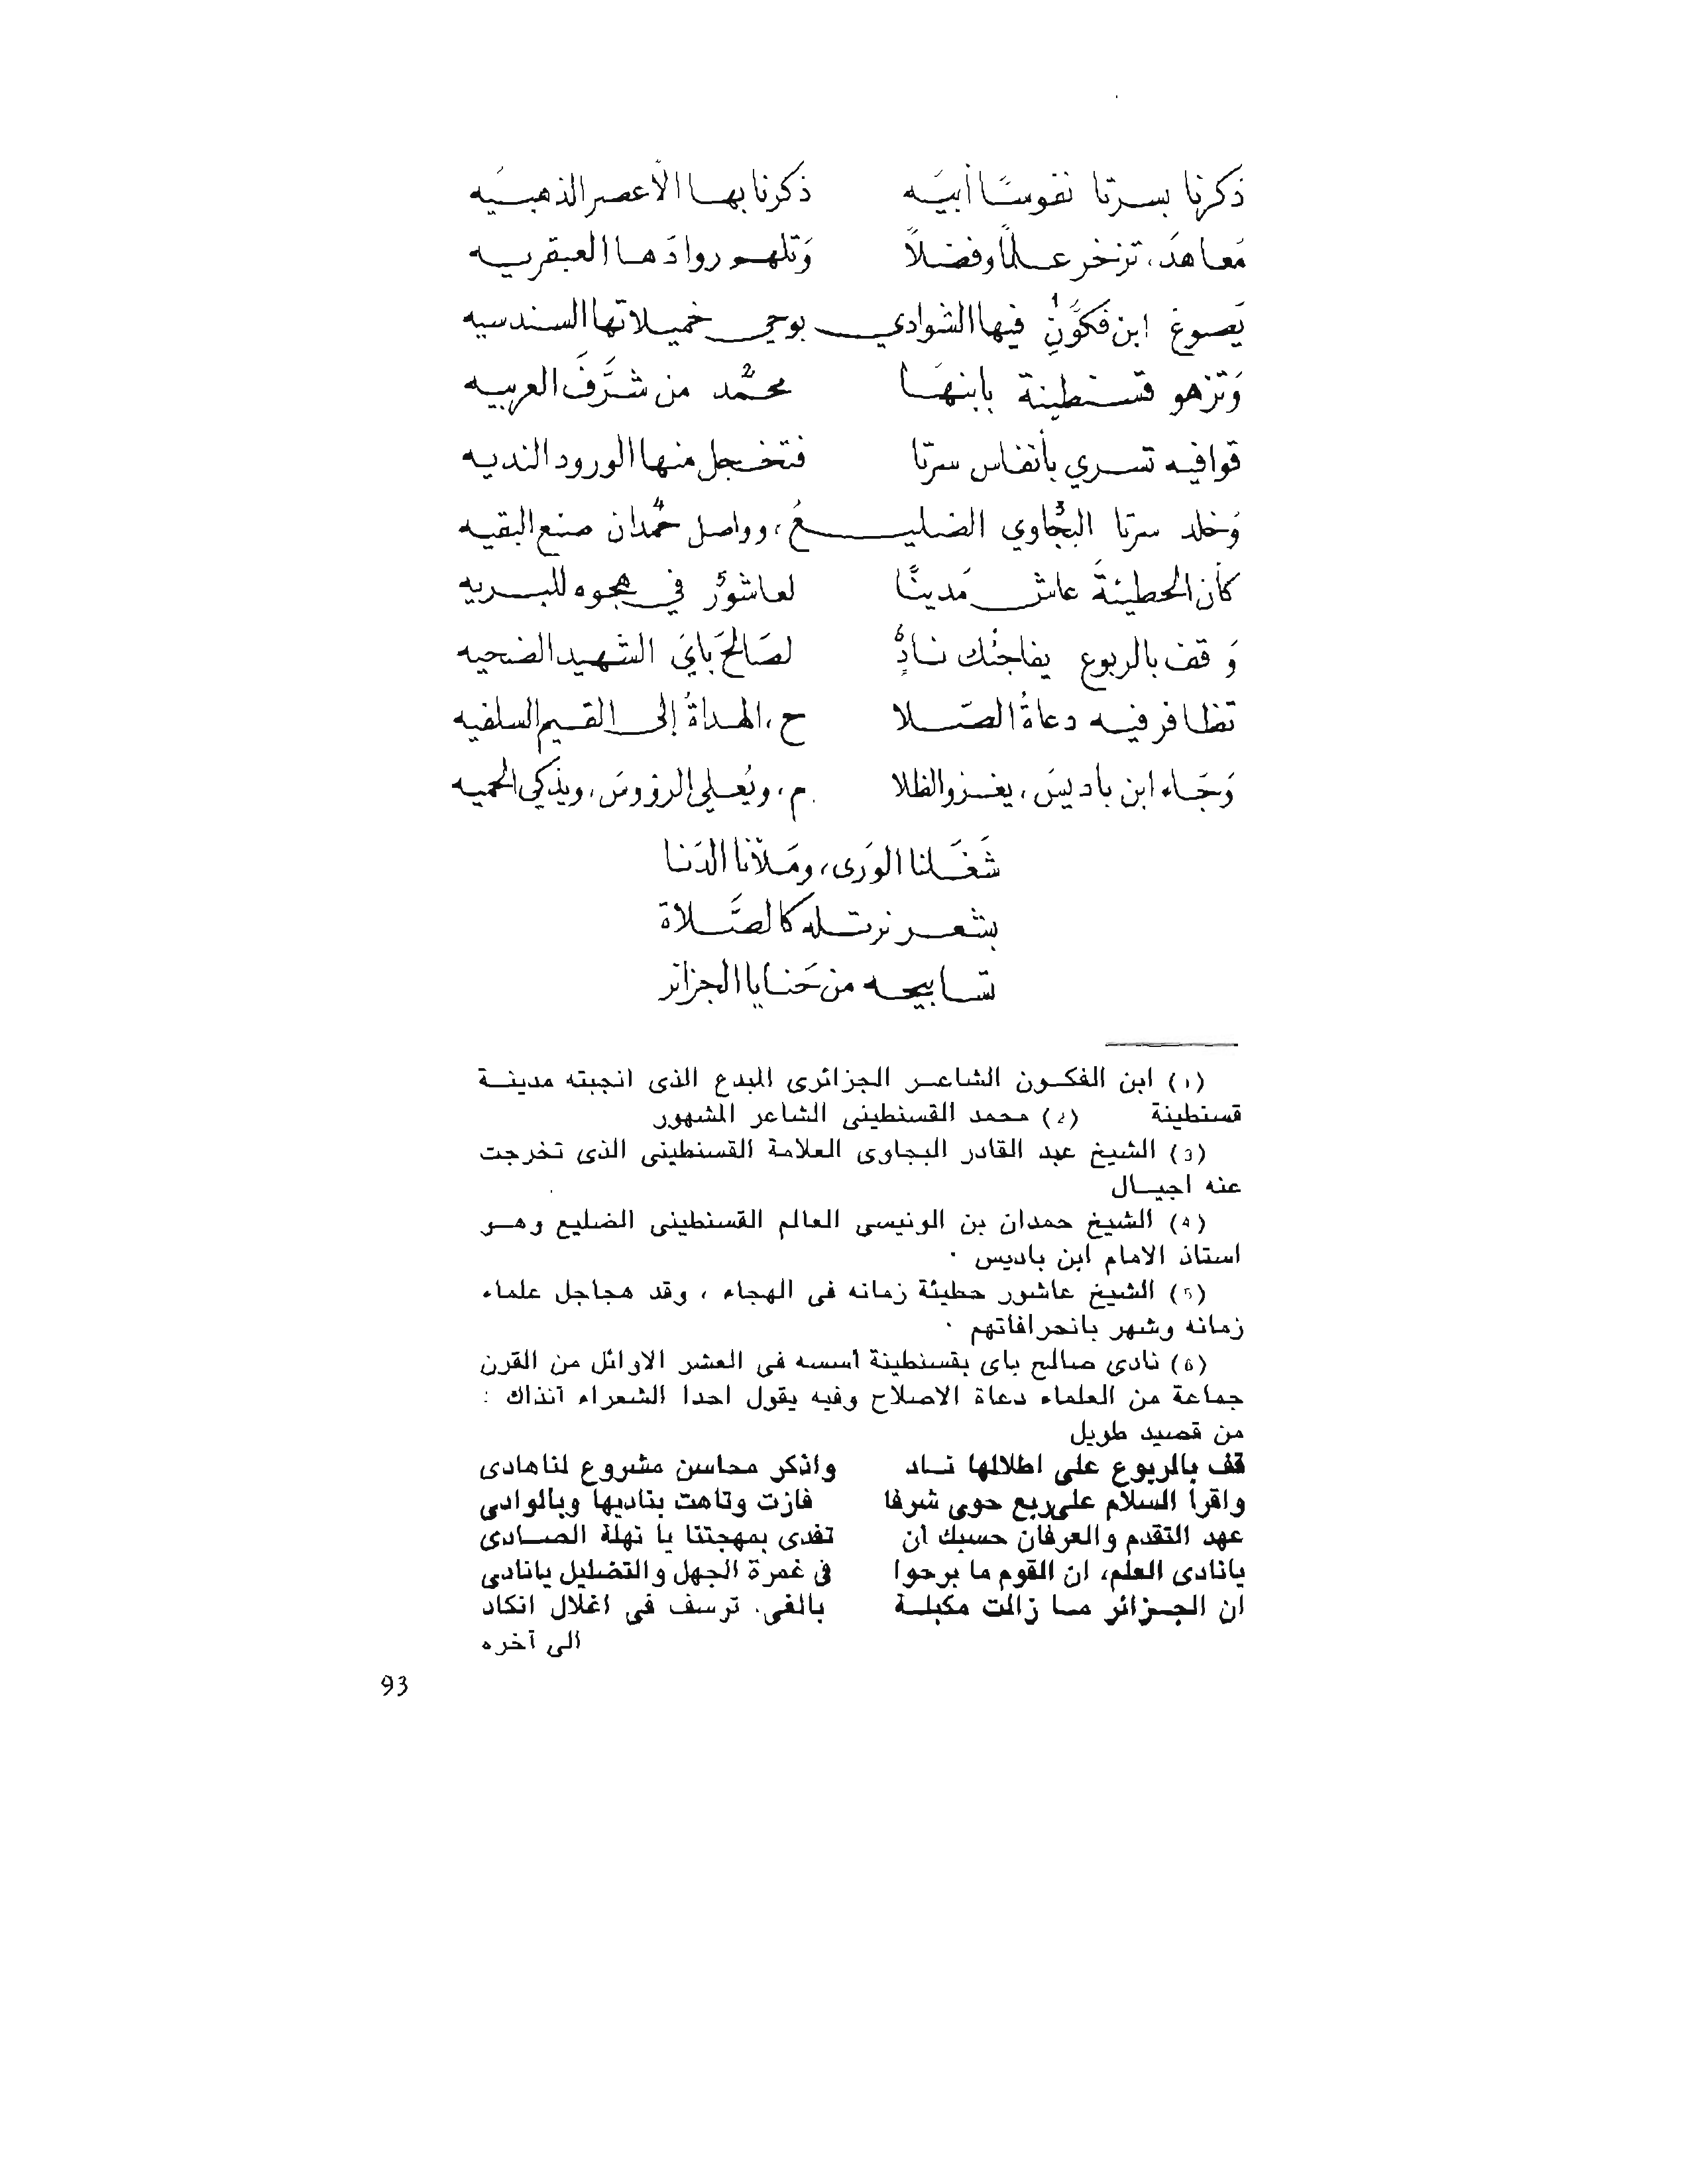 ذكرنا بسرتا نفوسًا أبيَه ذكرنا بهـا الأعصر الذهبـيَه
مَعـاهدَ، تزخر عـلمًا وفضـلاً وَتلهـم روادَهـا العبقريـه
يَصـوغ ابن فكوُنٍ¹ فيها الشوادي بوحي خميـلاتها السندسيه
وَتزهو قسـنطينة بابنهَـا محـمّد² من شرَّفَ العربيـه
قوافيه تسـري بأنفاس سرتا فتخـجل منها الورود النديـه
وَخلد سرتا البجَّاوي³ الضليـعُ، وواصل حُمدان⁴ صنع البقيـه
كأن الحطيئةَ عاش مَدينًا لعاشوُر⁵ في هجوه للبـريه
وَ قف بالربوع يفاجئك نـادٍ⁶ لصَالحَ بايَ الشهيد الضحيه
تظـافر فيـه دعاةُ الصَـلا ح، الهـداةُ إلى القـيم السلفيه
وَجَـاء ابن باديسَ، يغـزو الظلا م، ويُعـلي الرؤوسَ، ويذكي الحميه
شَغَـلنا الوَرى، ومَـلأنا الدَنـا
بشعـر نرتـله كالصَّـلاة
تسـابيحـه من حَنـايا الجزائر
(1) ابن الفكـون الشاعـر الجزائرى المبدع الذى انجبته مدينـة
قسنطينة (2) محمد القسنطينى الشاعر المشهور
(3) الشيخ عبد القادر البجاوى العلامة القسنطينى الذى تخرجت
عنه اجيـال
(4) الشيخ حمدان بن الونيسى العالم القسنطينى الضليع وهـو
استاذ الامام ابن باديس .
(5) الشيخ عاشور حطيئة زمانه فى الهجاء ، وقد هجاجل علماء
زمانه وشهر بانحرافاتهم .
(6) نادى صالح باى بقسنطينة أسسه فى العشر الاوائل من القرن
جماعة من العلماء دعاة الاصلاح وفيه يقول احدا الشعراء آنذاك :
من قصيد طويل
قف بالربوع على اطلالها نـاد واذكر محاسن مشروع لناهادى
واقرأ السلام على ربع حوى شرفا فازت وتاهت بناديها وبالوادى
عهد التقدم والعرفان حسبك ان تفدى بمهجتنا يا نهلة الصـادى
يانادى العلم، ان القوم ما برحوا فى غمرة الجهل والتضليل يانادى
ان الجـزائر مـا زالت مكبلـة بالغى. ترسف فى اغلال انكاد
الى آخره
93